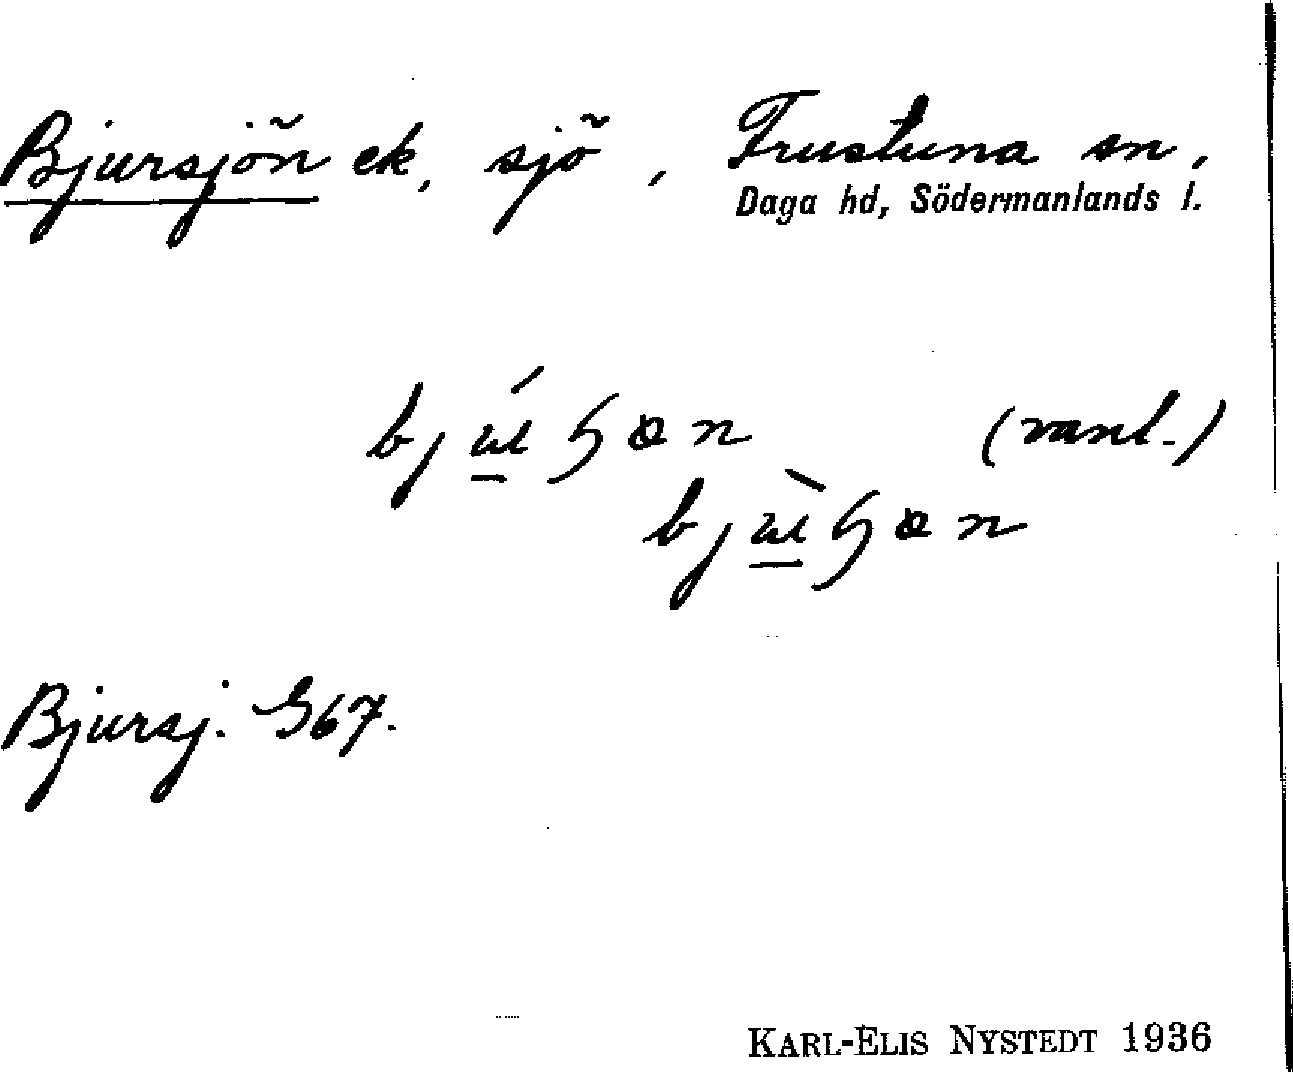 Bjursjön ek, sjö, Frustuna sn,
Daga hd, Södermanlands l.
(vanl.)
Bjursj. G67.
KARL-ELIS NYSTEDT 1936